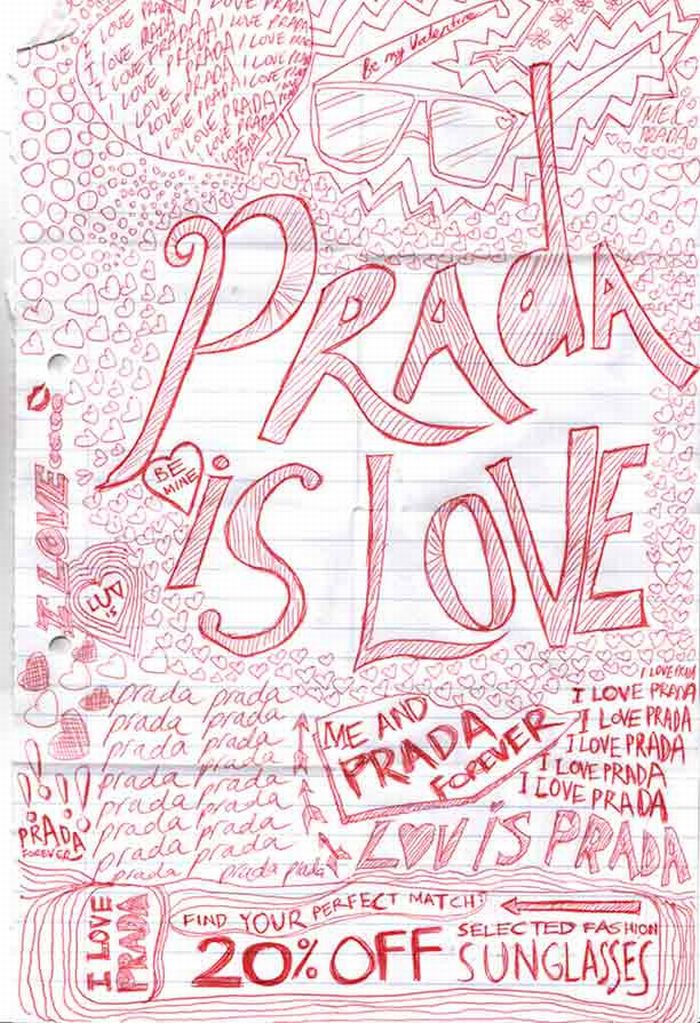 I LOVE PRADA I LOVE PRADA
I LOVE PRADA I LOVE PRADA
I LOVE PRADA I LOVE PRADA
I LOVE PRADA I LOVE PRADA
I LOVE PRADA I LOVE
I LOVE PRADA
Be my Valentine
MEL
PRADA
PRAdA
BE
MINE
iS LOVE
I LOVE
LUV
is
prada prada
prada prada
prada prada
prada prada
prada prada
prada prada
prada prada
prada prada
prada prada prada
ME AND
PRADA
FOREVER
I LOVE PRADA
I LOVE PRADA
I LOVE PRADA
I LOVE PRADA
I LOVE PRADA
I LOVE PRADA
!!!!
PRADA
FOREVER
L♥V iS PRADA
I LOVE
PRADA
FIND YOUR PERFECT MATCH:
20% OFF
SELECTED FASHION
SUNGLASSES